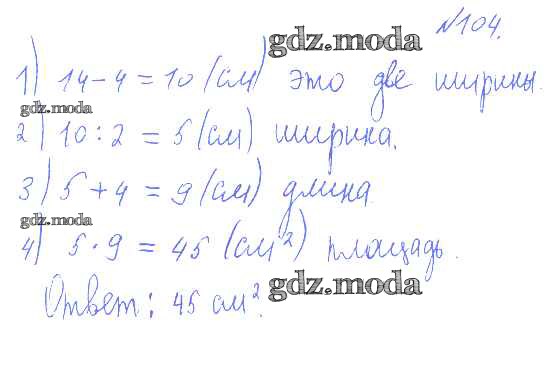 №104.
gdz.moda
1) 14 - 4 = 10 (см) это две ширины.
gdz.moda
2) 10 : 2 = 5 (см) ширина.
3) 5 + 4 = 9 (см) длина
gdz.moda
4) 5 · 9 = 45 (см²) площадь.
gdz.moda
Ответ: 45 см².